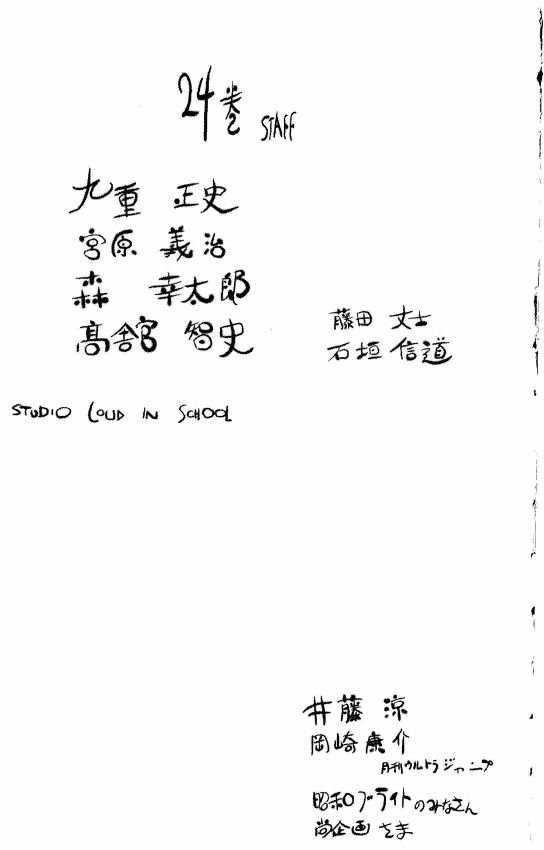 24巻 STAFF
九重 正史
宮原 義治
森 幸太郎
高舎宮 智史
藤田 丈士
石垣 信道
STUDIO LOUD IN SCHOOL
井藤 涼
岡崎 康介
月刊ウルトラジャンプ
昭和ブライトのみなさん
尚企画 さま